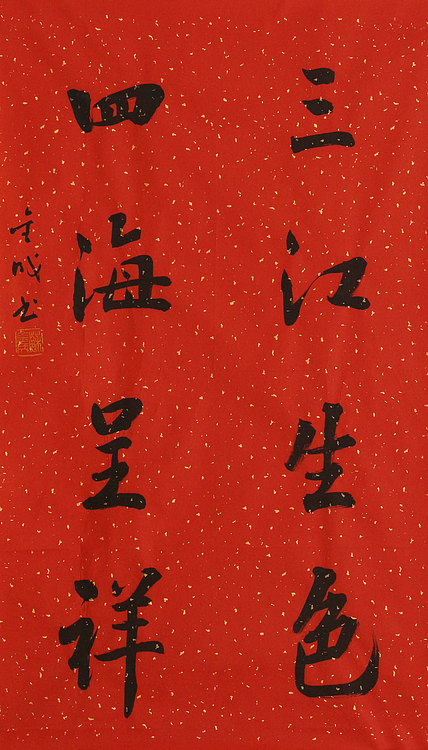 三江生色
四海呈祥
金成书